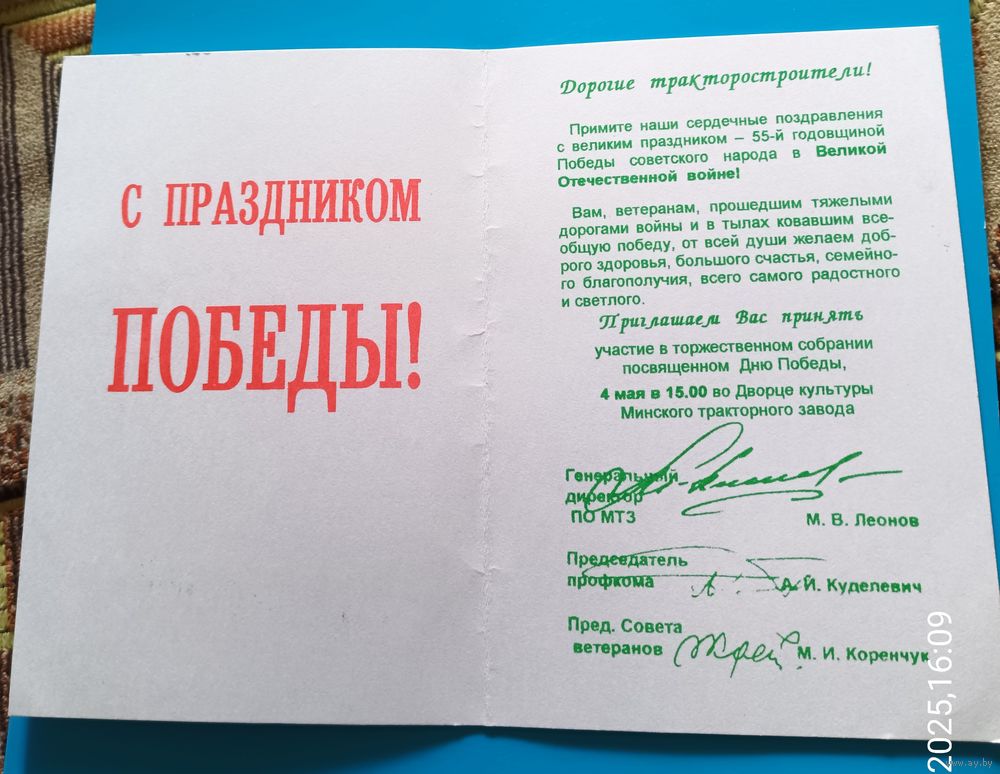 С ПРАЗДНИКОМ
ПОБЕДЫ!
Дорогие тракторостроители!
Примите наши сердечные поздравления
с великим праздником – 55-й годовщиной
Победы советского народа в Великой
Отечественной войне!
Вам, ветеранам, прошедшим тяжелыми
дорогами войны и в тылах ковавшим все-
общую победу, от всей души желаем доб-
рого здоровья, большого счастья, семейно-
го благополучия, всего самого радостного
и светлого.
Приглашаем Вас принять
участие в торжественном собрании
посвященном Дню Победы,
4 мая в 15.00 во Дворце культуры
Минского тракторного завода
Генеральный
директор
ПО МТЗ
М. В. Леонов
Председатель
профкома
А. Й. Куделевич
Пред. Совета
ветеранов
М. И. Коренчук
2025,16:09
www.ay.by